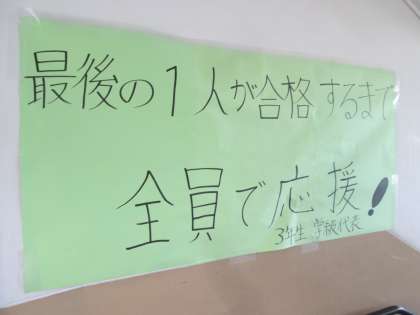 最後の1人が合格するまで
全員で応援!
3年生 学級代表